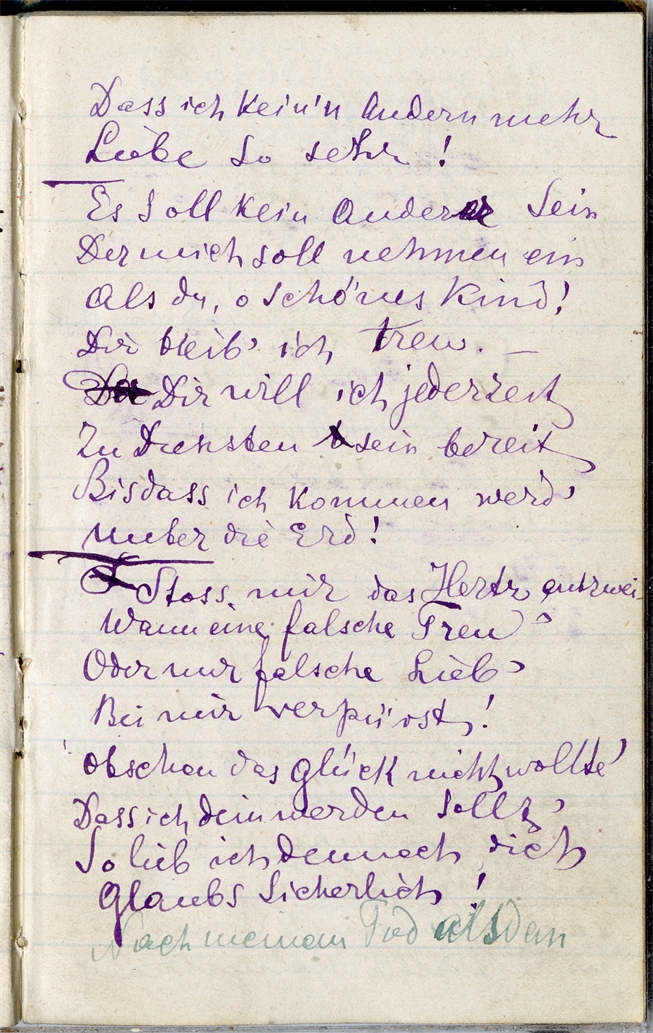 Dass ich kein'n Andern mehr
Liebe so sehr !
Es soll kein Anderer sein
Der mich soll nehmen ein
Als du, o schönes Kind!
Dir bleib' ich treu. —
Dir will ich jederzeit
Zu Diensten sein bereit
Bis dass ich kommen werd'
unter die Erd!
Stoss mir das Hertz entzwei
Wann eine falsche Treu'
Oder nur falsche Lieb'
Bei mir verspürst!
obschon das Glück nicht wollte'
Dass ich dein werden sollt'
So lieb ich dennoch dich
Glaubs sicherlich !
Nach meinem Tod alsdan